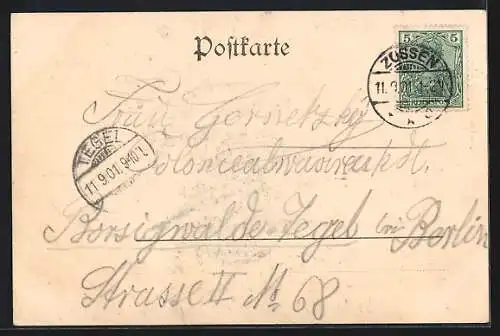 Postkarte
5 5
ZOSSEN
11.9.01.1-2N
TEGEL
11.9.01.9-10V.
Frau Gornetzky
Colonialwaaren
Borsigwalde Tegel bei Berlin
Strasse II No 68